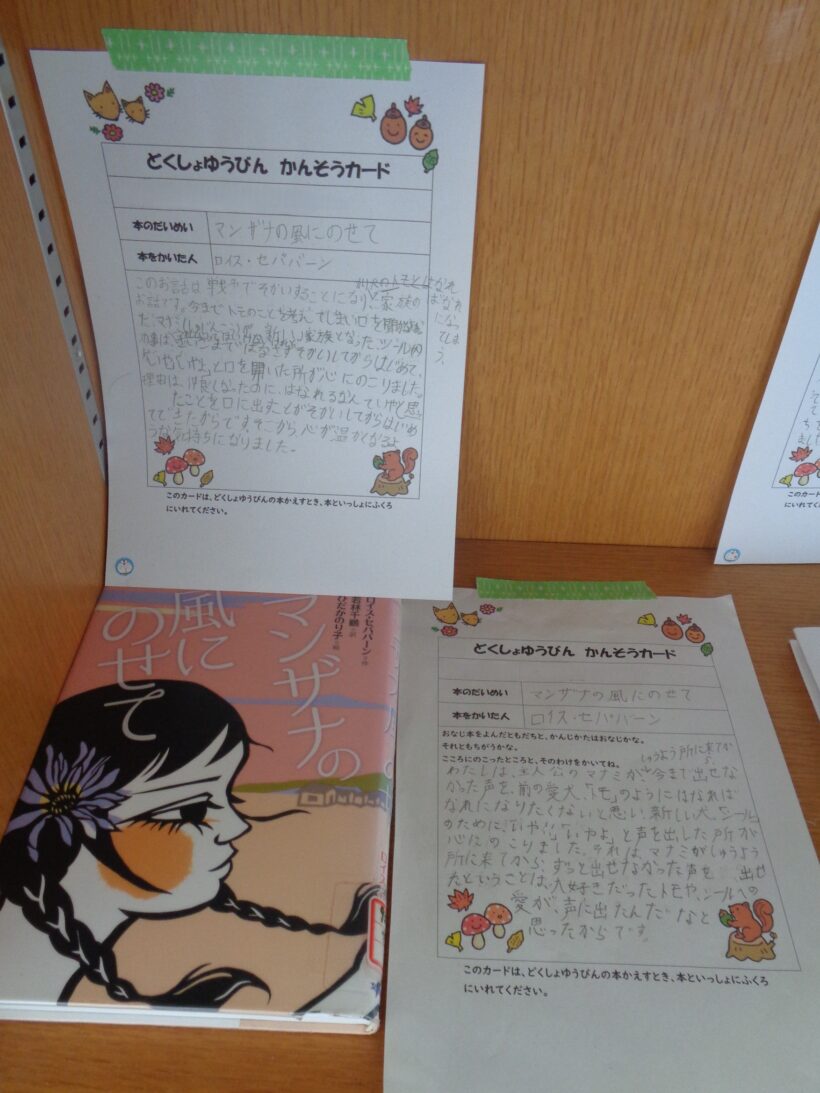 どくしょゆうびん かんそうカード
本のだいめい マンザナの風にのせて
本をかいた人 ロイス・セパバーン
このお話は戦争でそかいすることになり、家族の
はなればなれになってしまう、
お話です。今までトモのことを考えてしまい口を
新しい家族となったシール
そかいしてからはじめて、
「いや」「いやよ」と口を開いた所が心にのこりました。
理由は、仲良くなったのに、はなれるなんていやと思っ
たことを口に出すことがそかいしてからはじめ
てできたからです。そこから心が温かくなるよ
うな気持ちになりました。
このカードは、どくしょゆうびんの本かえすとき、本といっしょにふくろ
にいれてください。
マンザナの
風に
のせて
ロイス・セパバーン・作
若林千鶴・訳
ひだかのり子・絵
どくしょゆうびん かんそうカード
本のだいめい マンザナの風にのせて
本をかいた人 ロイス・セパバーン
おなじ本をよんだともだちと、かんじかたはおなじかな。
それともちがうかな。
こころにのこったところと、そのわけをかいてね。
しゅうよう所に来てから、
わたしは、主人公のマナミが今まで出せな
かった声を、前の愛犬、「トモ」のようにはなればな
れになりたくないと思い新しい犬、「シール」
のために「いや!」「いやよ」と声を出した所が
心にのこりました。それは、マナミがしゅうよう
所に来てから、ずっと出せなかった声を 出せ
たということは、大好きだったトモや、シールへの
愛が、声に出たんだなと
思ったからです。
このカードは、どくしょゆうびんの本かえすとき、本といっしょにふくろ
にいれてください。